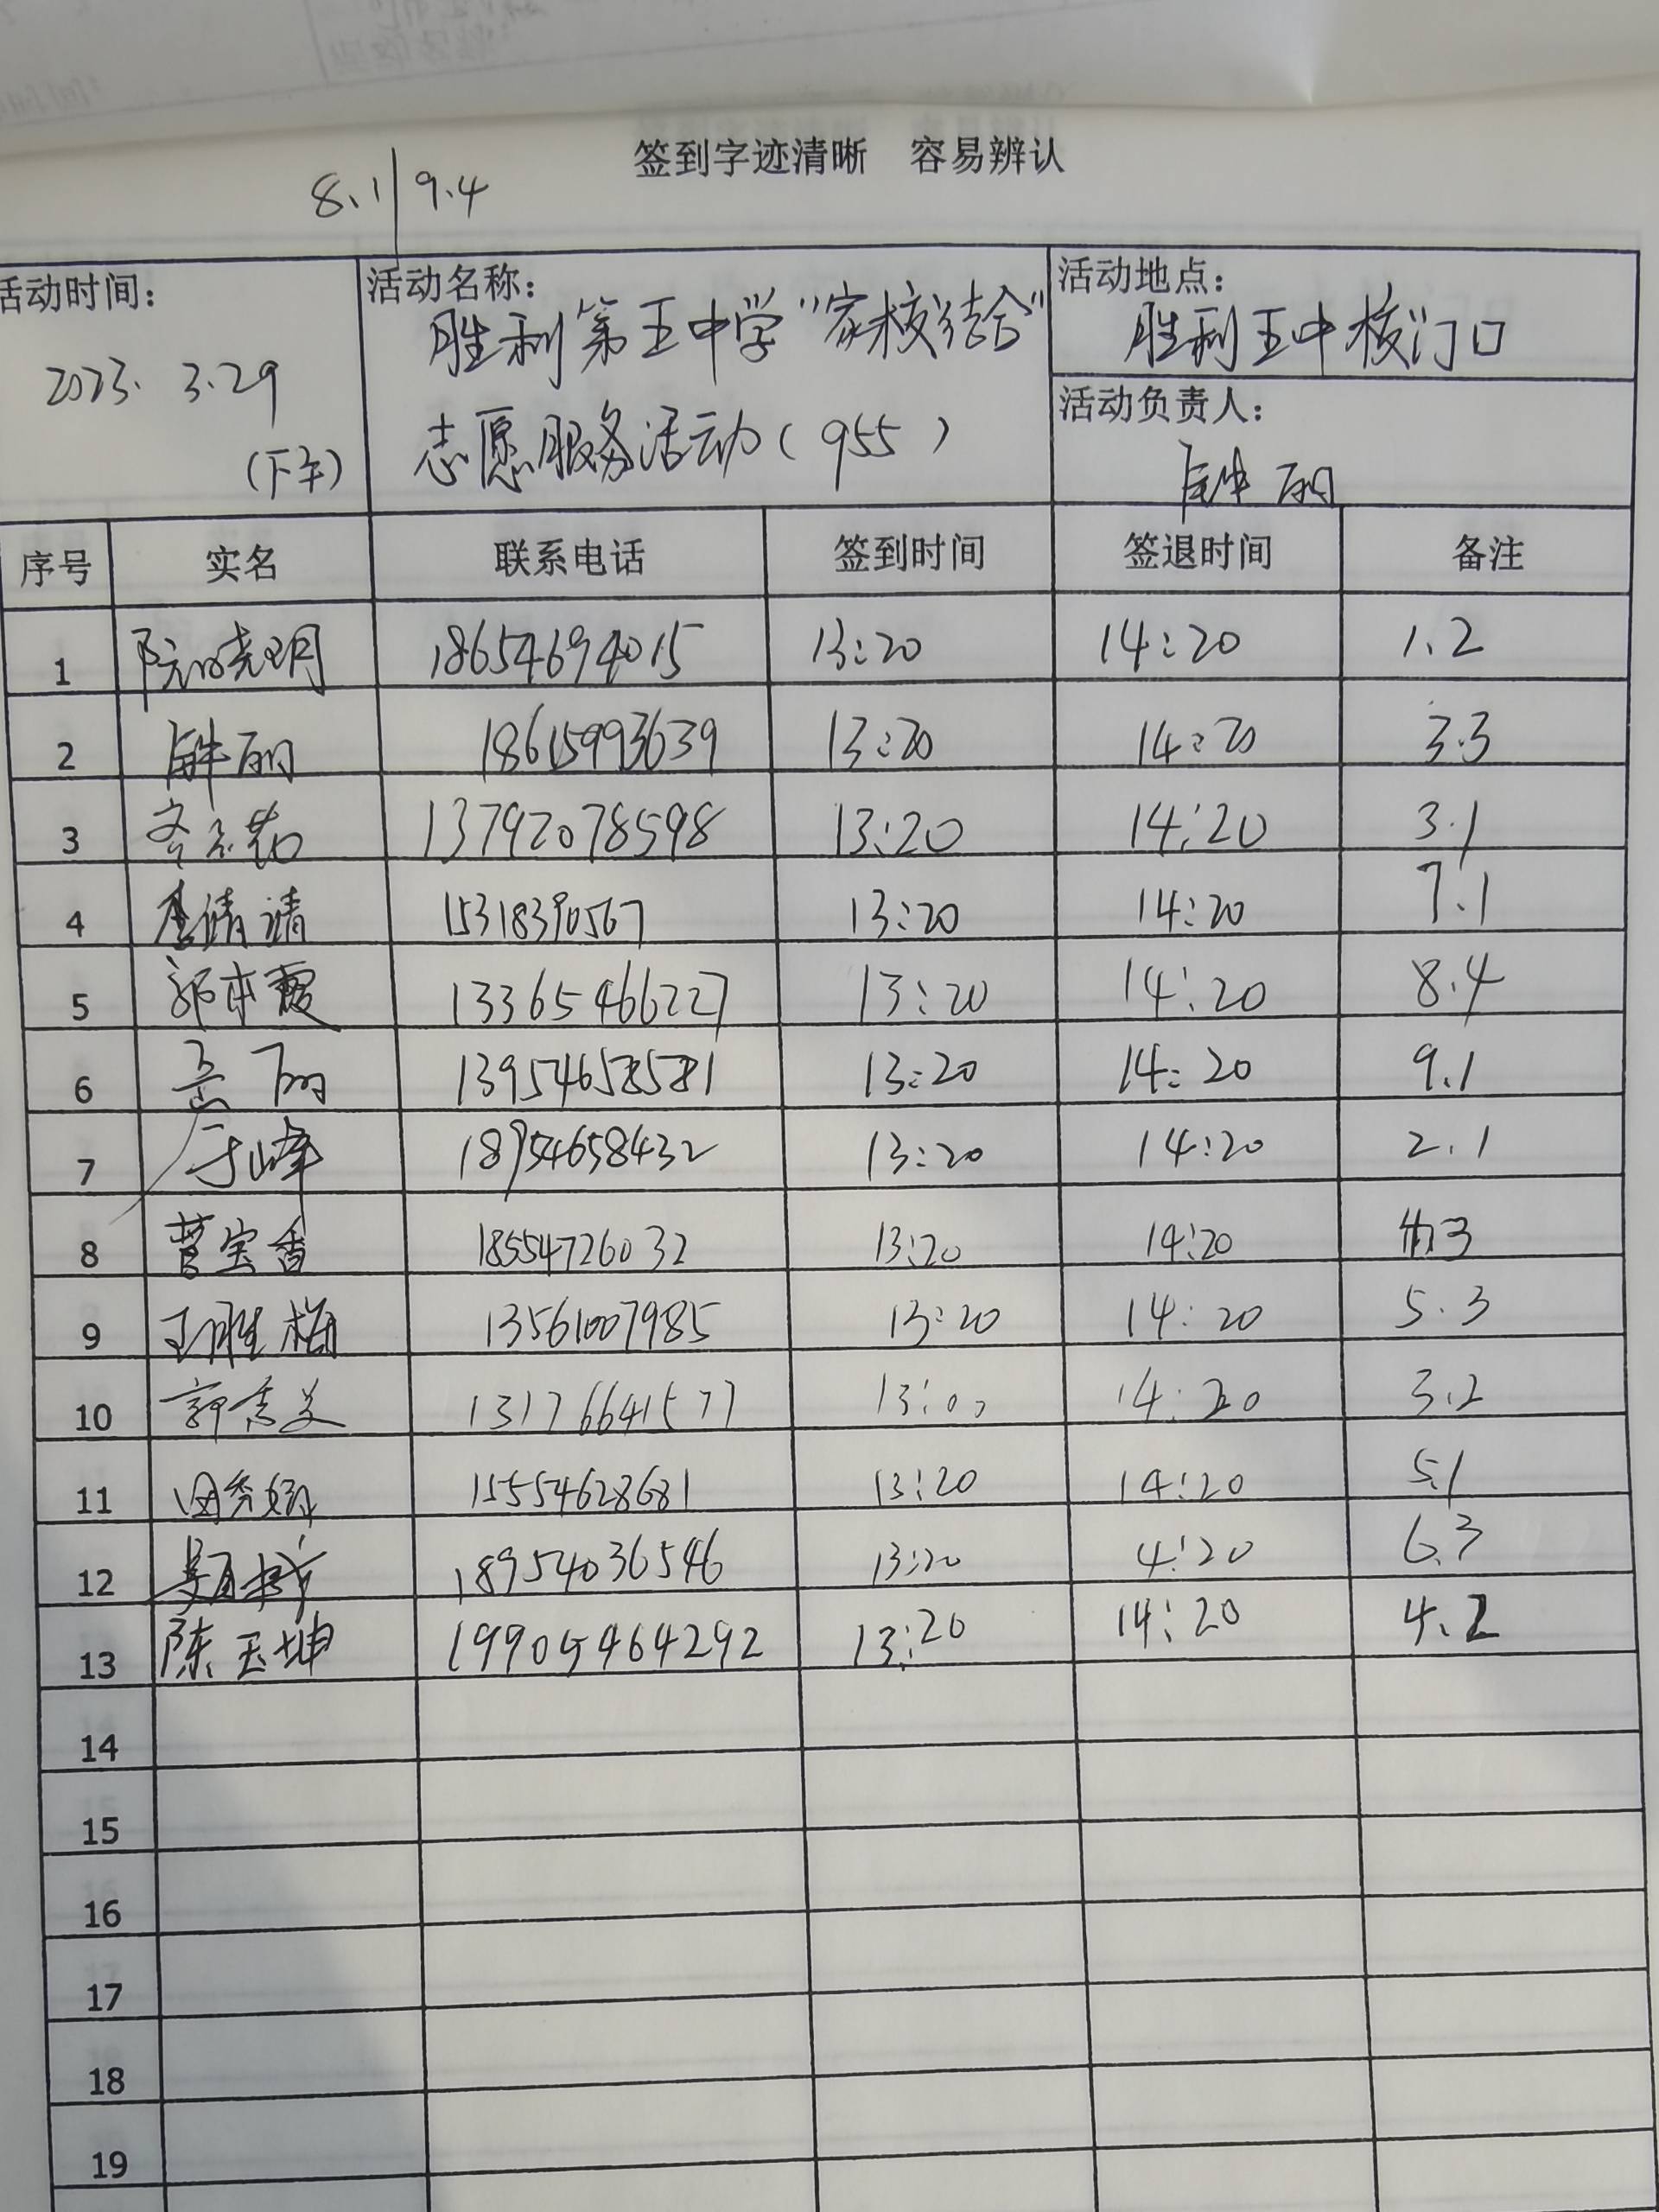 签到字迹清晰 容易辨认
8.1 9.4
活动时间:
2023. 3.29
(下午)
活动名称:
胜利第五中学"家校结合"
志愿服务活动(955)
活动地点:
胜利五中校门口
活动负责人:
丽
序号 实名 联系电话 签到时间 签退时间 备注
1 阮晓玥 18654694015 13:20 14:20 1.2
2 丽 18615993639 13:20 14:20 3.3
3 13792078598 13:20 14:20 3.1
4 李倩倩 15318390567 13:20 14:20 7.1
5 郭本霞 13365466227 13:20 14:20 8.4
6 孟丽 13:20 14:20 9.1
7 于峰 18954658432 13:20 14:20 2.1
8 曹宝香 18554726032 13:20 14:20
9 王胜梅 13561007985 13:20 14:20 5.3
10 郭秀美 13176641577 14:20 3.2
11 田秀娟 15554628681 13:20 14:20 5.1
12 18954036546 13:20 4:20 6.3
13 陈玉坤 199054464292 13:20 14:20 4.2
14
15
16
17
18
19